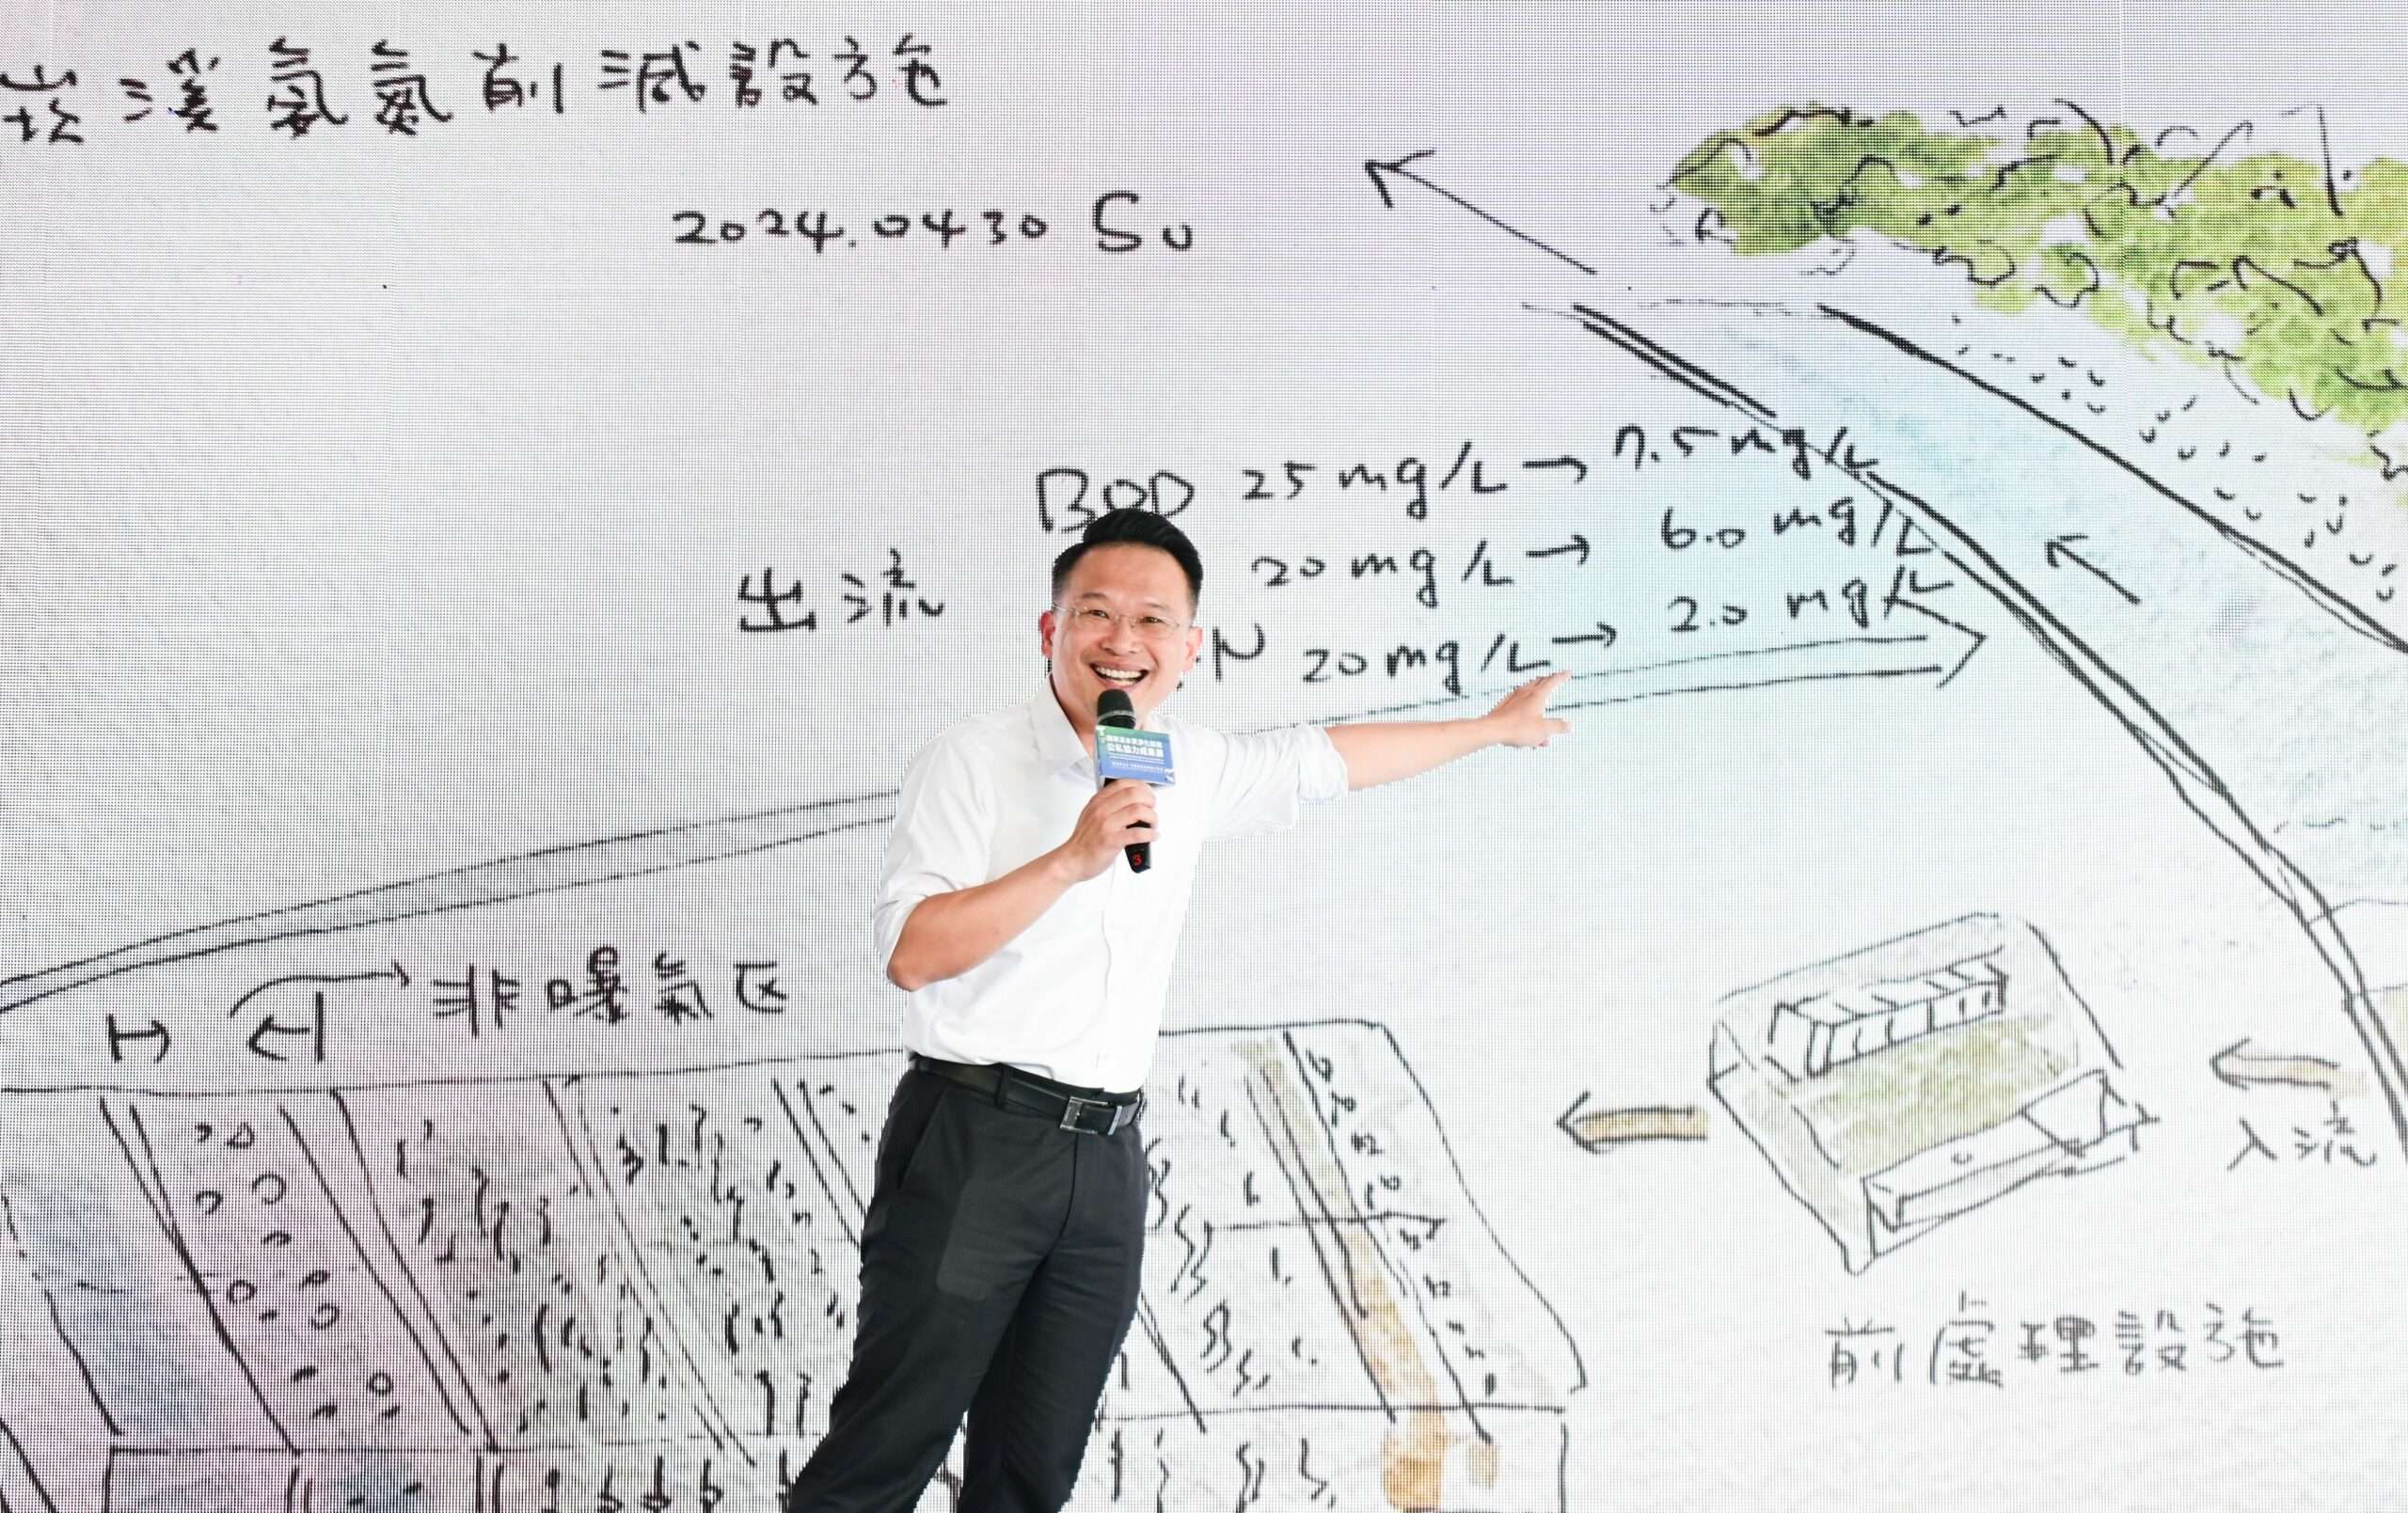 崁溪氨氮削減設施
2024.0430 Su
BOD 25mg/L → 7.5mg/L
20mg/L → 6.0mg/L
出流
N 20mg/L → 2.0mg/L
非曝氣区
入流
前處理設施
3